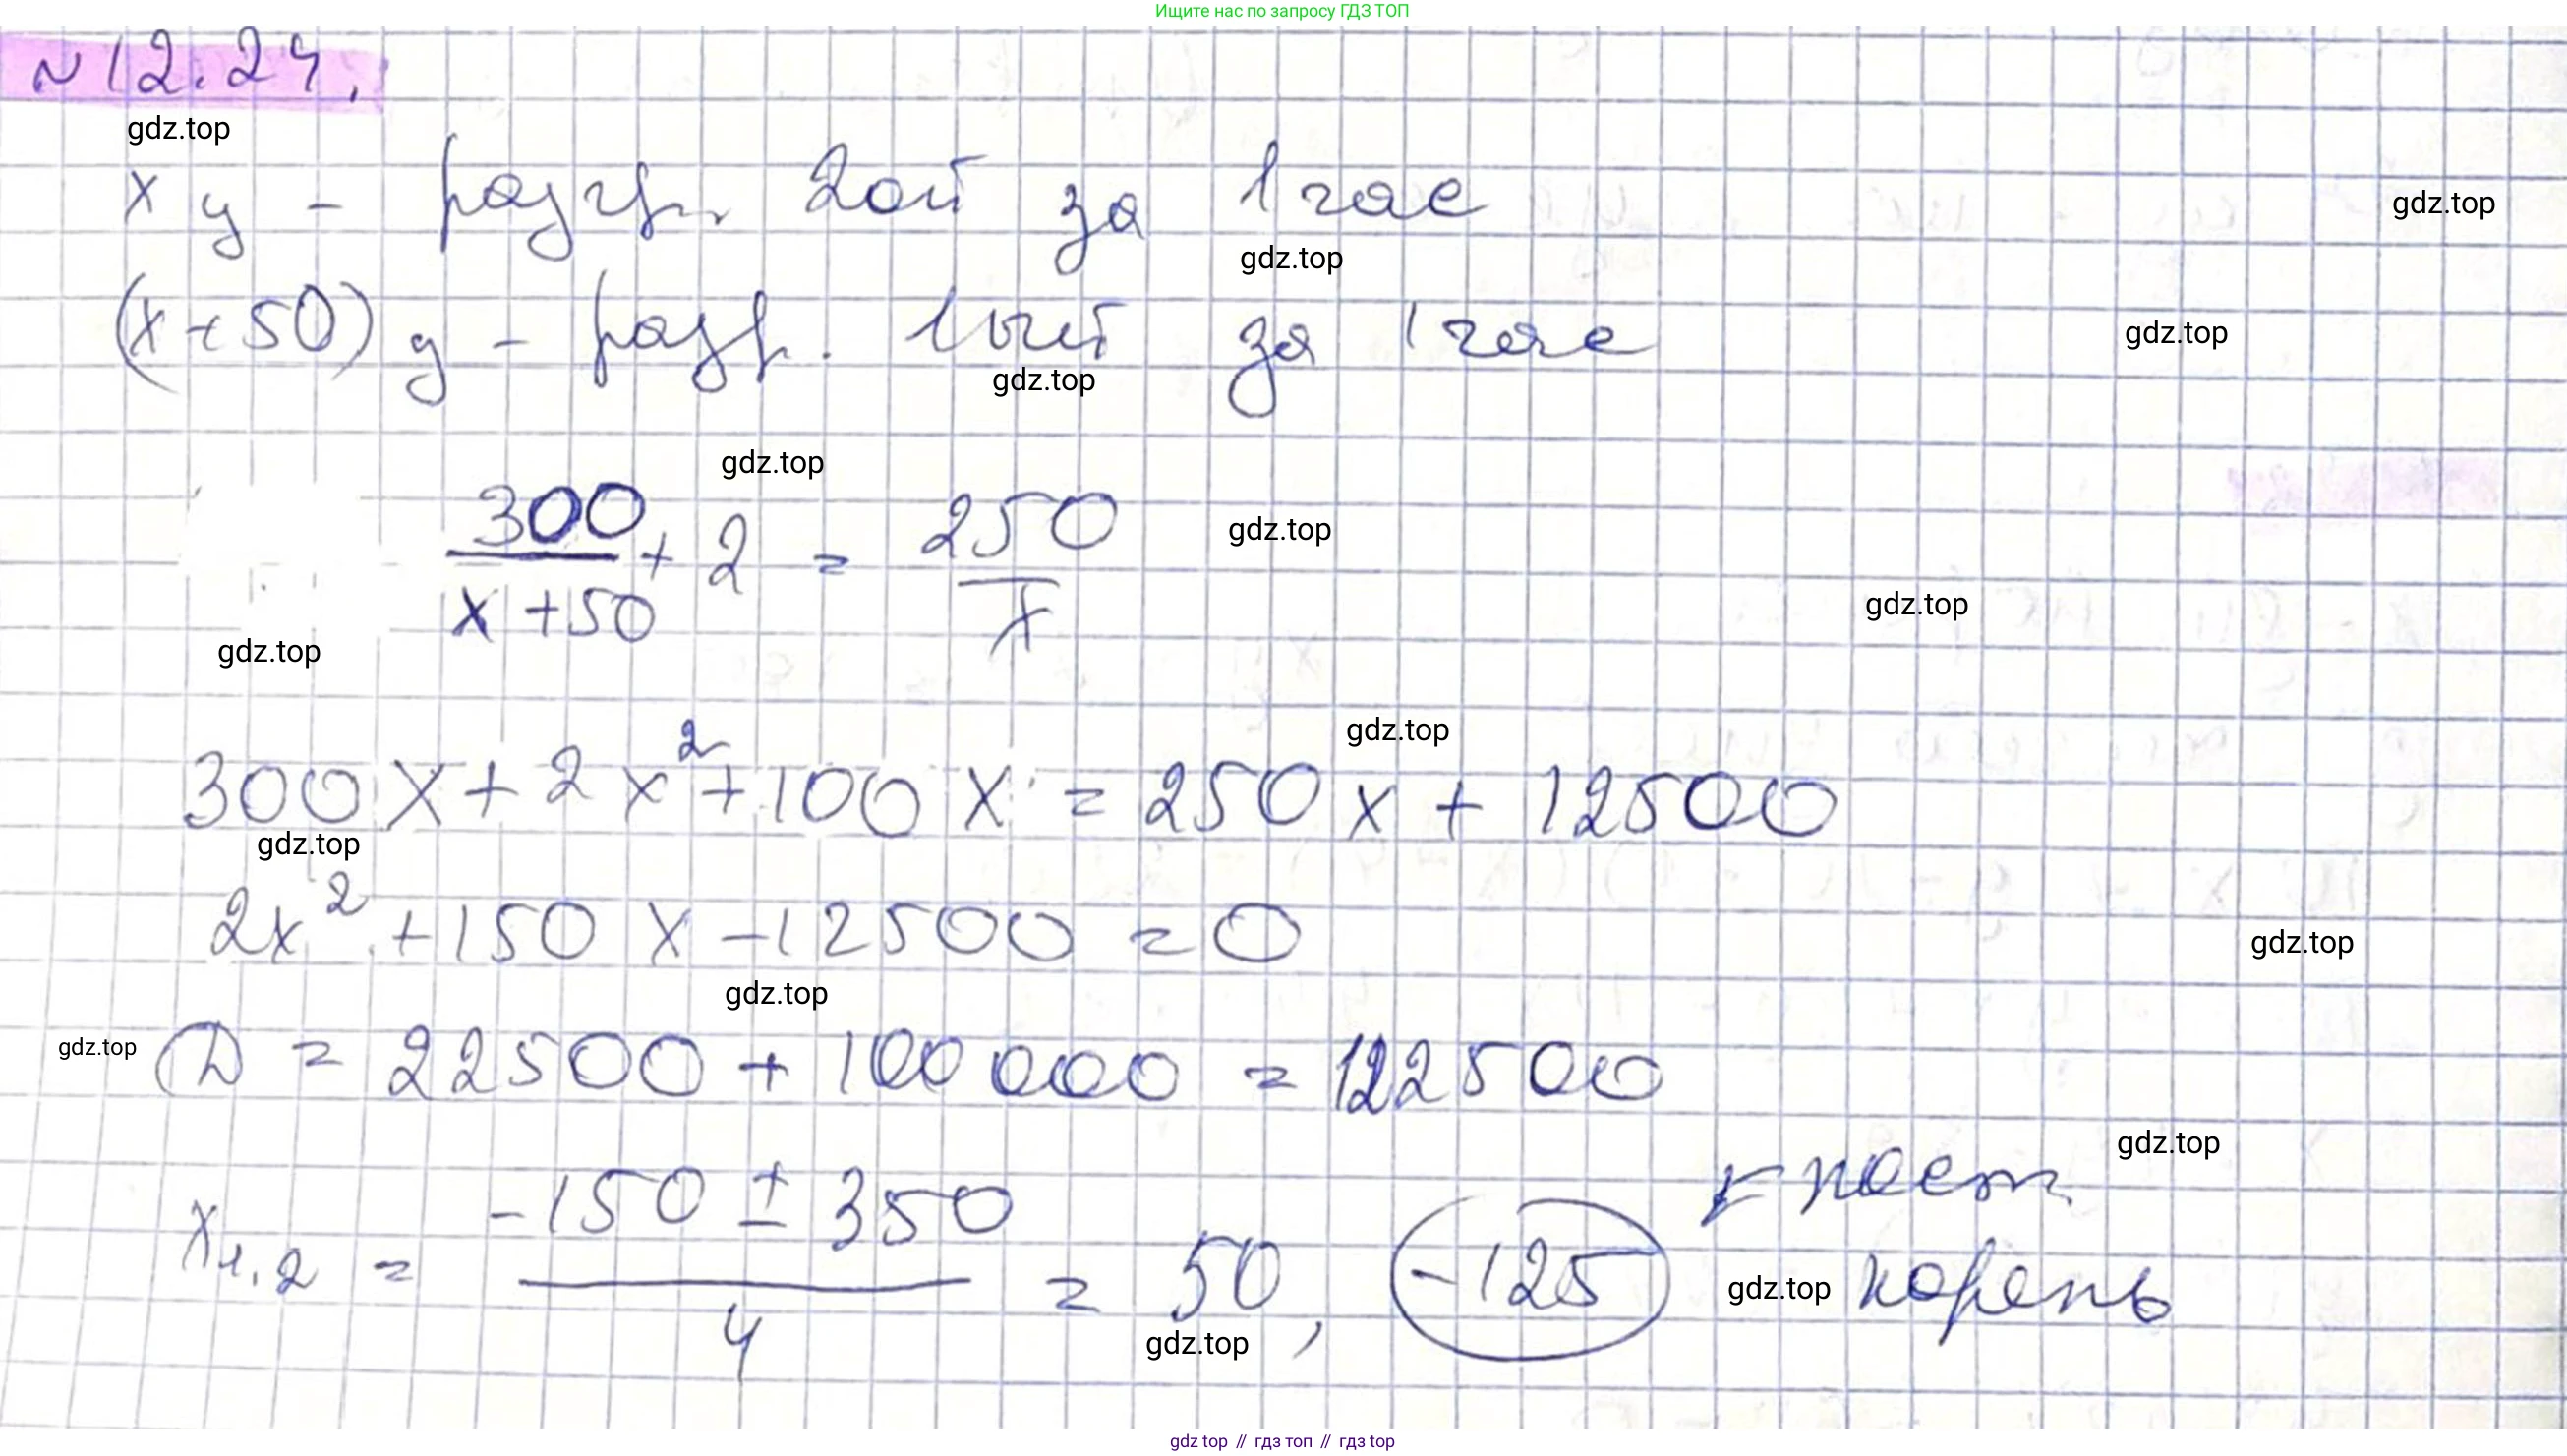 Ищите нас по запросу ГДЗ ТОП
№12.24.
gdz.top
x ц - разгр. 2ой за 1 час
gdz.top
gdz.top
(x+50) ц - разгр. 1ый за 1 час
gdz.top
gdz.top
gdz.top
300/(x+50) + 2 = 250/x
gdz.top
gdz.top
gdz.top
gdz.top
300x + 2x² + 100x = 250x + 12500
gdz.top
2x² + 150x - 12500 = 0
gdz.top
gdz.top
gdz.top
D = 22500 + 100000 = 122500
gdz.top
x1,2 = (-150 ± 350)/4 = 50, -125
пост.
корень
gdz.top
gdz.top
gdz top // гдз топ // гдз top